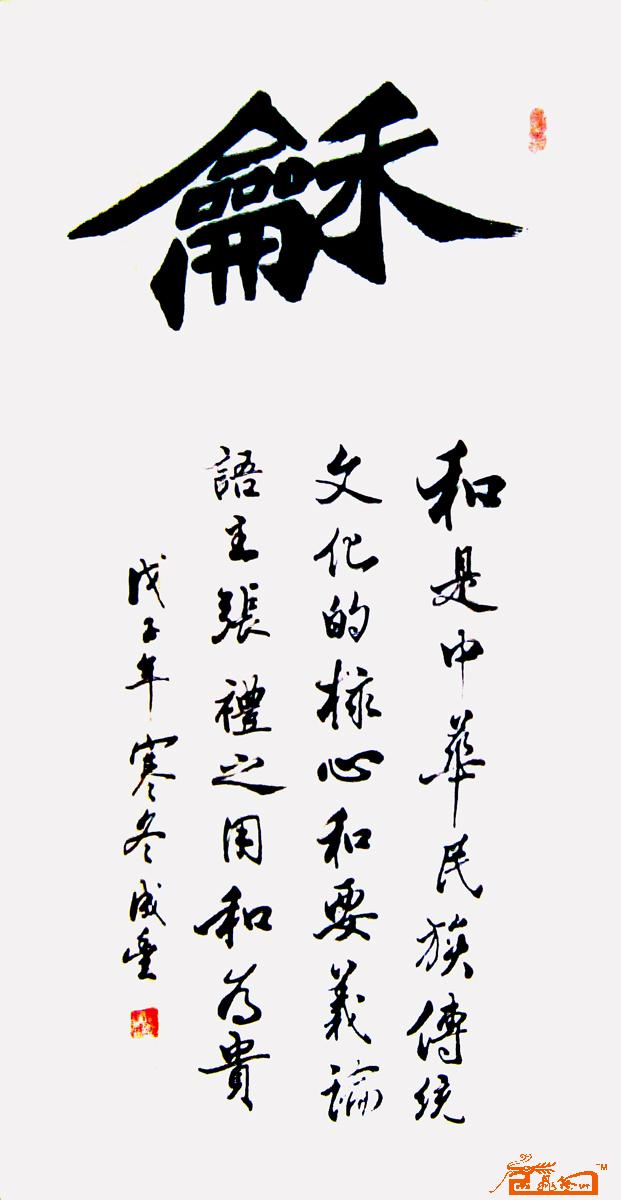 龢
和是中華民族傳統
文化的核心和要義論
語主張禮之用和為貴
戊子年寒冬成重